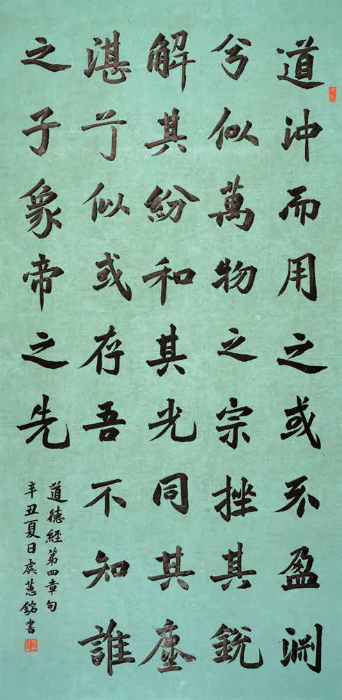 道沖而用之或不盈淵
兮似萬物之宗挫其銳
解其紛和其光同其塵
湛兮似或存吾不知誰
之子象帝之先
道德經第四章句
辛丑夏日虞慧銘書